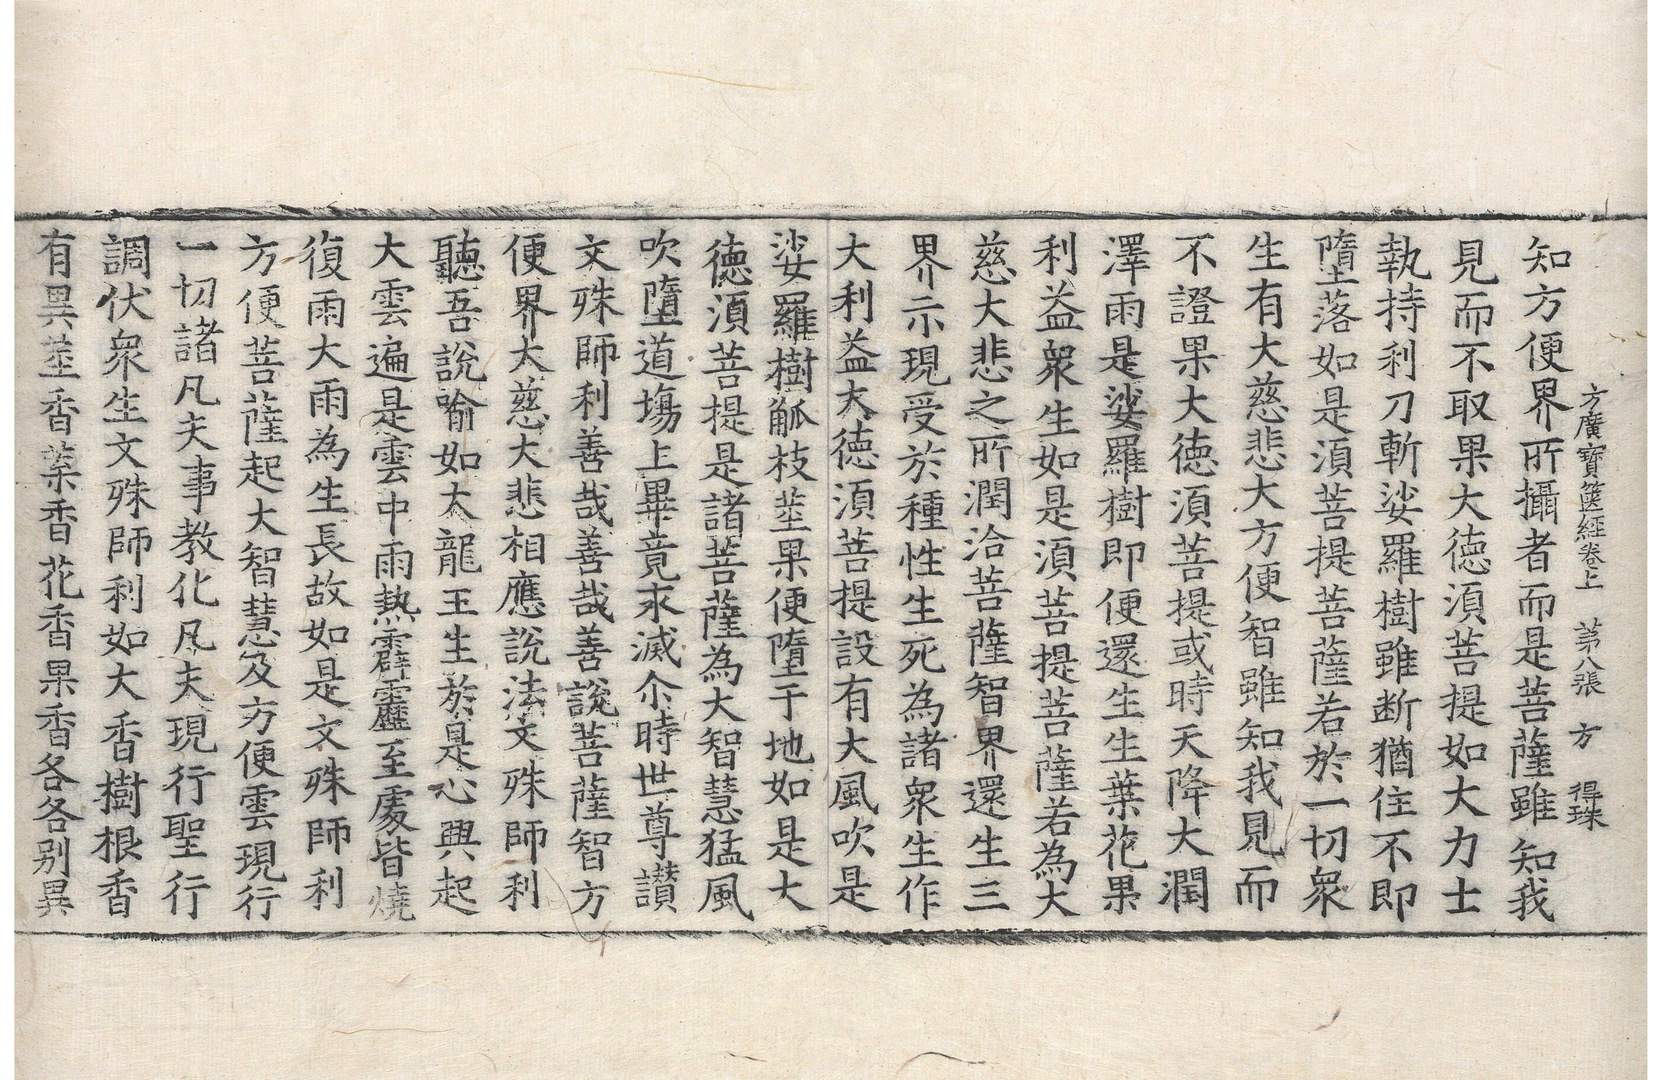 方廣寶篋經卷上 第八張 方 得珠
知方便界所攝者而是菩薩雖知我
見而不取果大德湏菩提如大力士
執持利刀斬娑羅樹雖断猶住不即
墮落如是湏菩提菩薩若於一切衆
生有大慈悲大方便智雖知我見而
不證果大徳湏菩提或時天降大潤
澤雨是娑羅樹即便還生生葉花果
利益衆生如是湏菩提菩薩若為大
慈大悲之所潤洽菩薩智界還生三
界示現受於種性生死為諸衆生作
大利益大德湏菩提設有大風吹是
娑羅樹觚枝莖果便墮于地如是大
德湏菩提是諸菩薩為大智慧猛風
吹墮道塲上畢竟永滅尒時世尊讃
文殊師利善哉善哉善說菩薩智方
便界大慈大悲相應說法文殊師利
聽吾說喻如大龍王生於是心興起
大雲遍是雲中雨熱霹靂至處皆燒
復雨大雨為生長故如是文殊師利
方便菩薩起大智慧及方便雲現行
一切諸凡夫事教化凡夫現行聖行
調伏衆生文殊師利如大香樹根香
有異莖香葉香花香果香各各別異